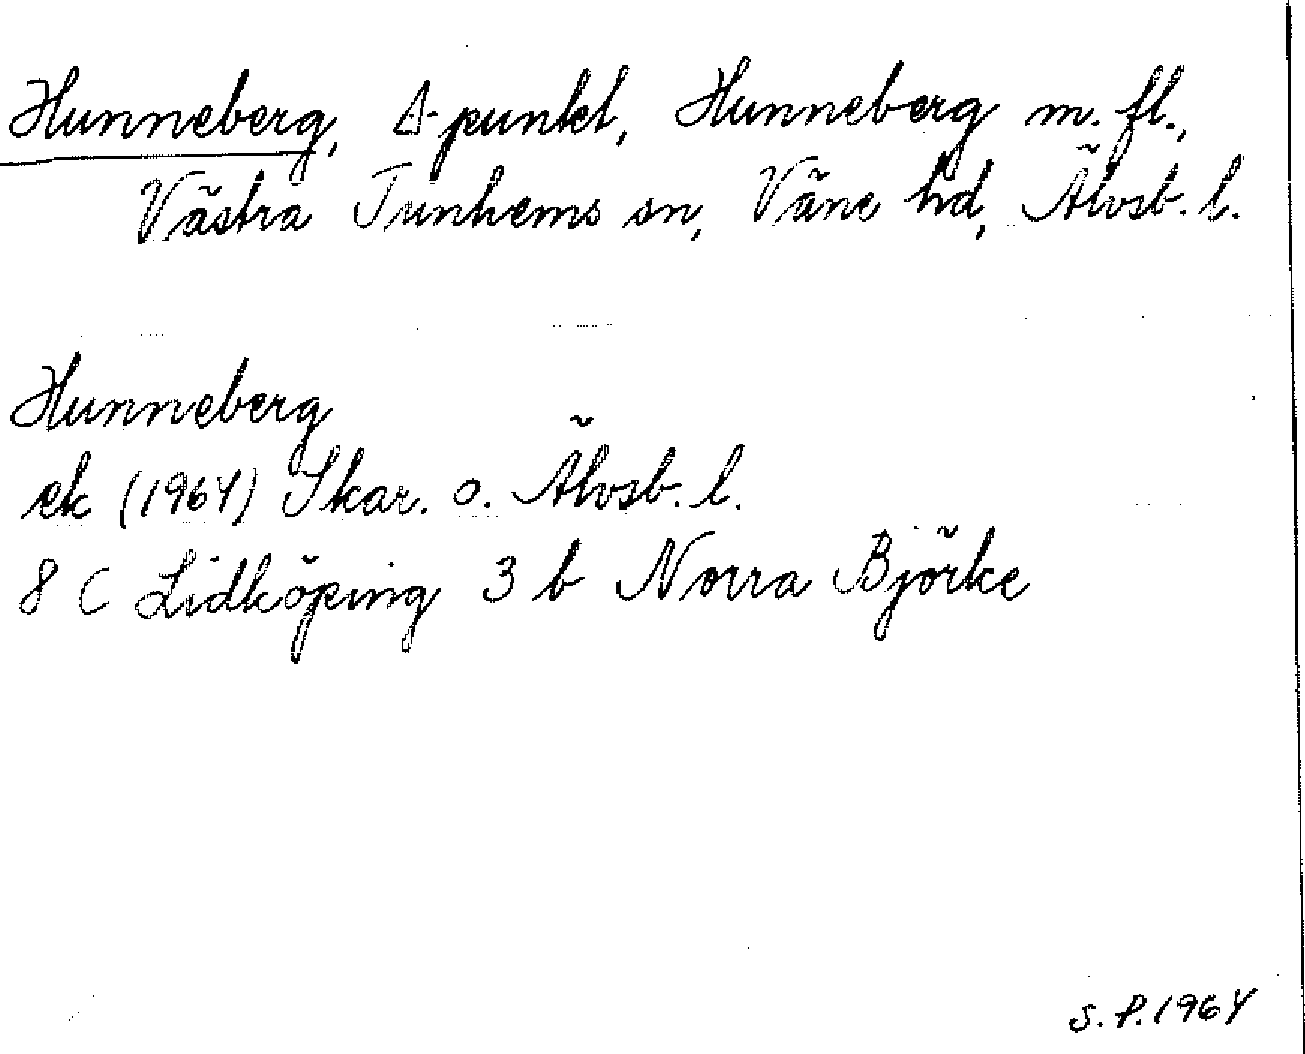 Hunneberg, Δ-punkt, Hunneberg m. fl.,
Västra Tunhems sn, Väne hd, Älvsb. l.
Hunneberg
ek (1964) Skar. o. Älvsb. l.
8 C Lidköping 3 b Norra Björke
S.P.1964